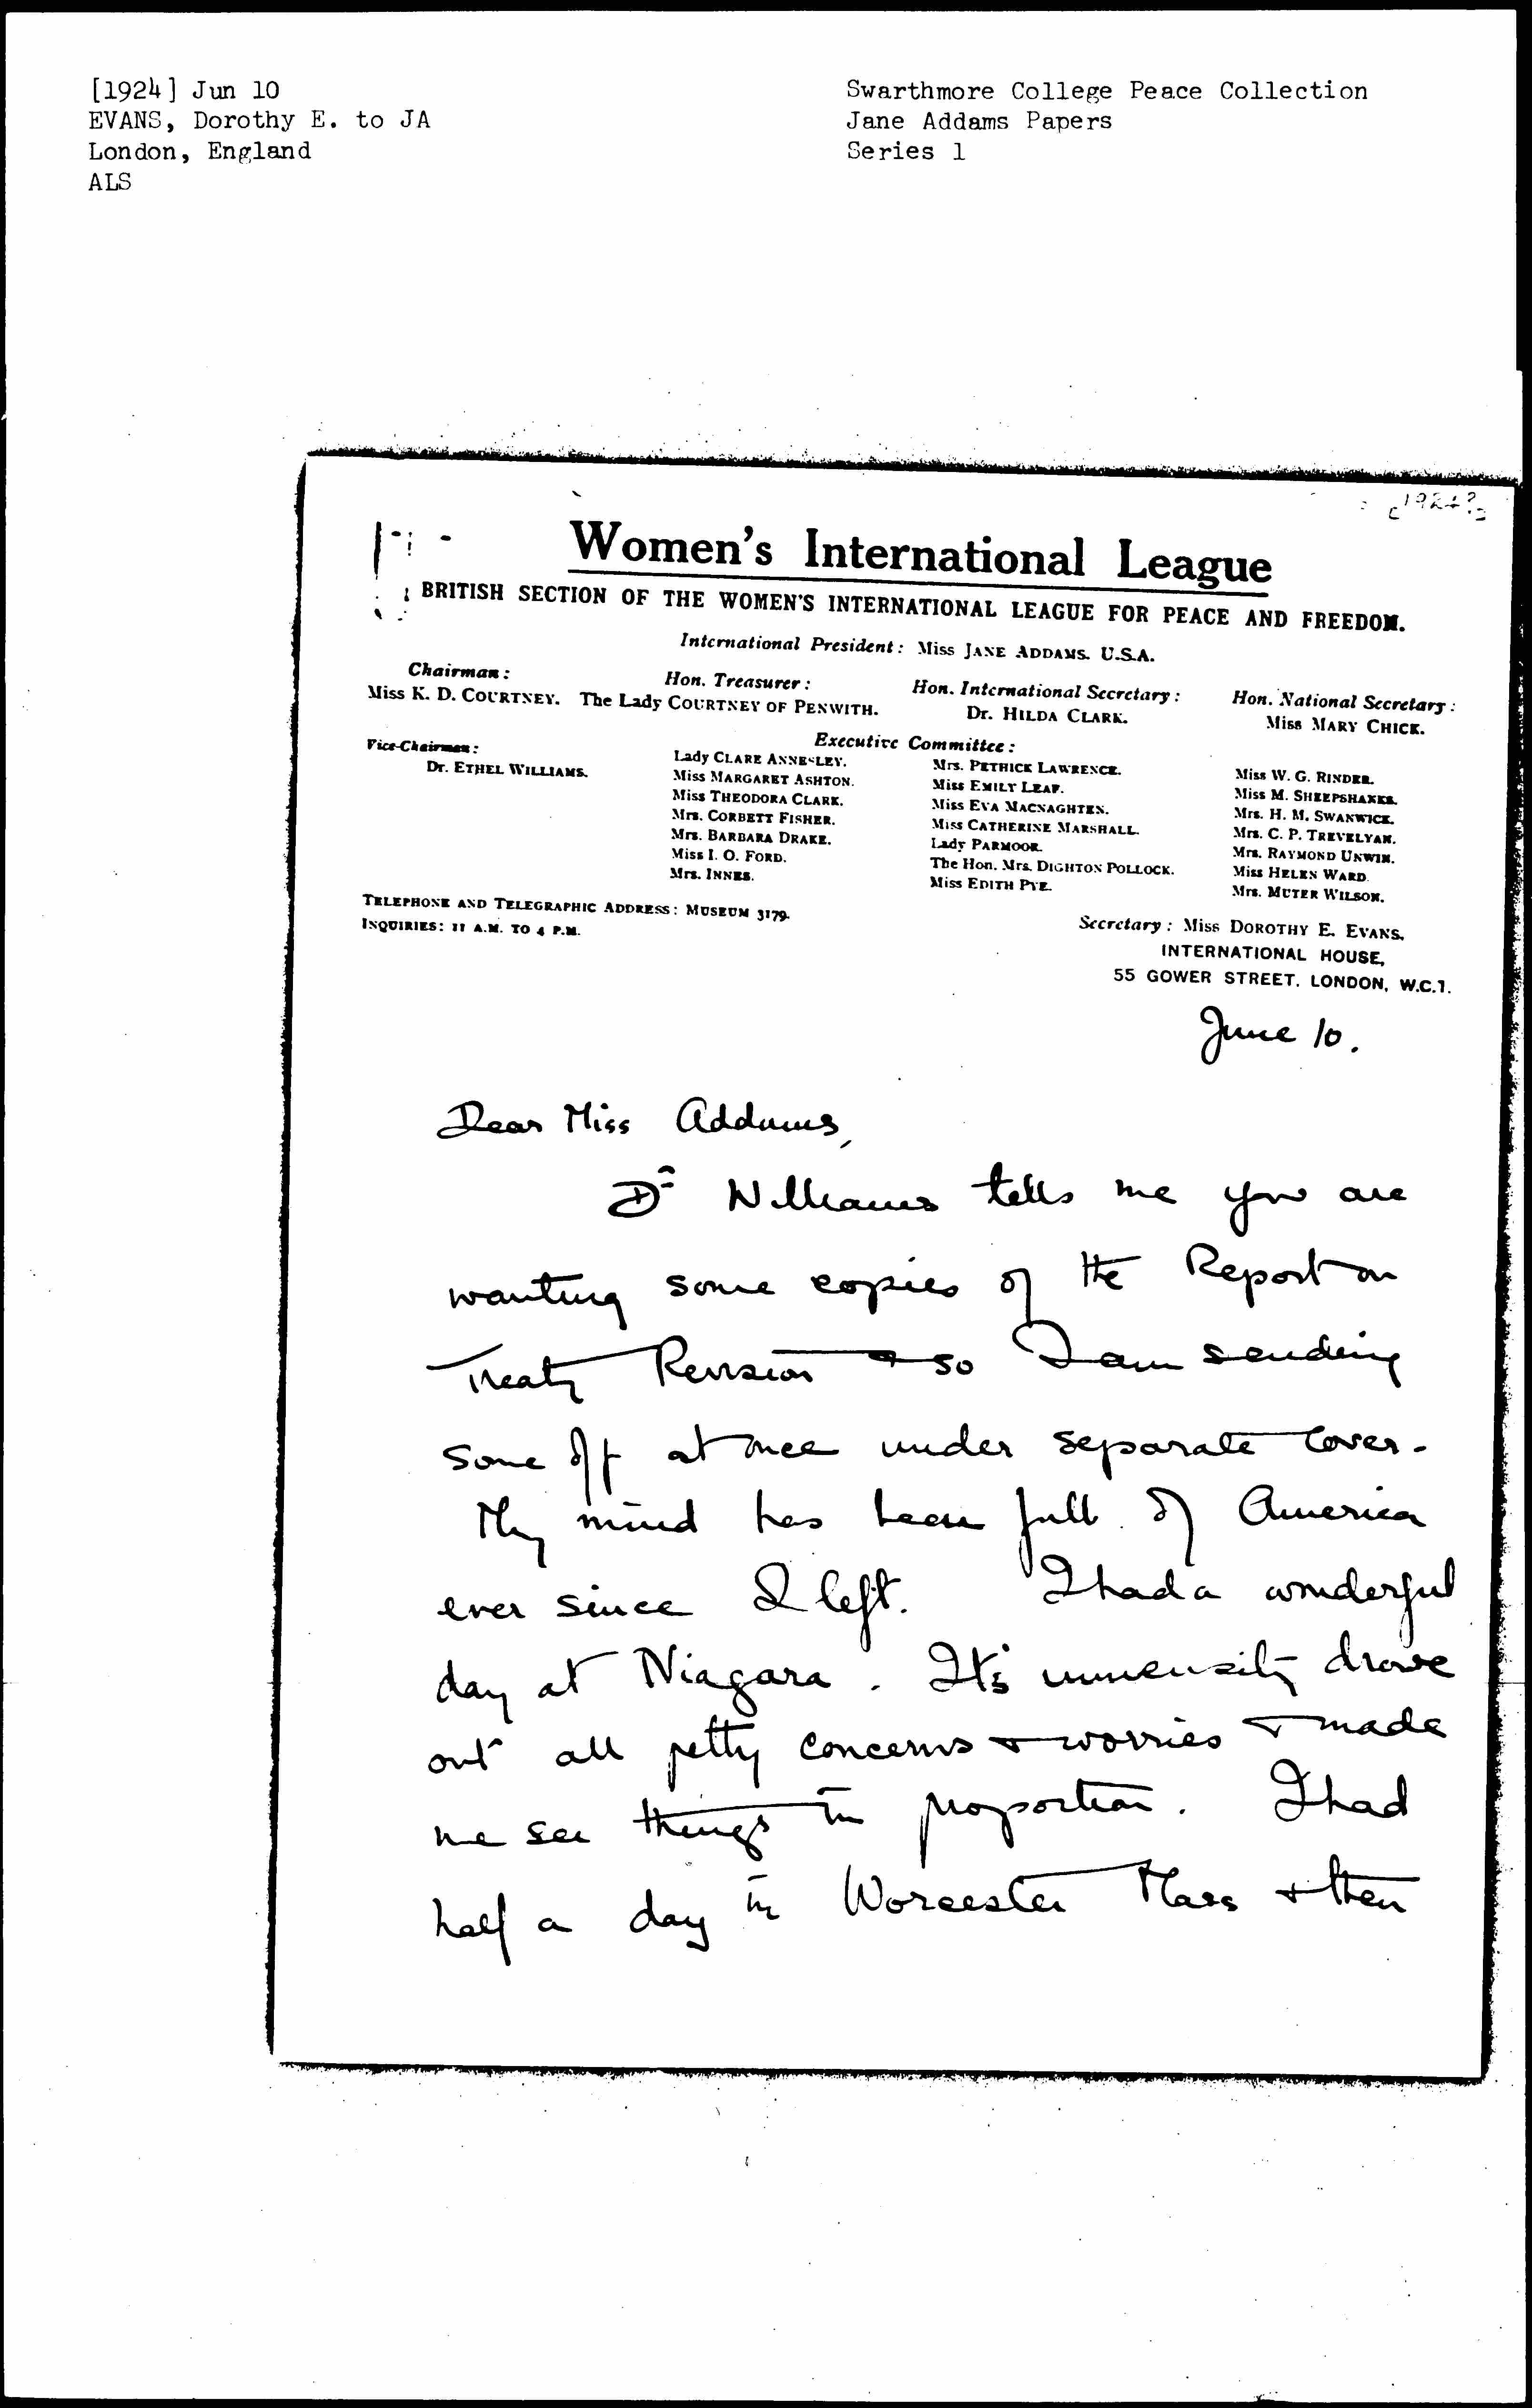 [1924] Jun 10
EVANS, Dorothy E. to JA
London, England
ALS
Swarthmore College Peace Collection
Jane Addams Papers
Series 1
[1924?]
Women's International League
BRITISH SECTION OF THE WOMEN'S INTERNATIONAL LEAGUE FOR PEACE AND FREEDOM.
International President: Miss JANE ADDAMS. U.S.A.
Chairman:
Miss K. D. COURTNEY.
Hon. Treasurer:
The Lady COURTNEY OF PENWITH.
Hon. International Secretary:
Dr. HILDA CLARK.
Hon. National Secretary:
Miss MARY CHICK.
Vice-Chairman:
Dr. ETHEL WILLIAMS.
Executive Committee:
Lady CLARE ANNESLEY.
Miss MARGARET ASHTON.
Miss THEODORA CLARK.
Mrs. CORBETT FISHER.
Mrs. BARBARA DRAKE.
Miss I. O. FORD.
Mrs. INNES.
Mrs. PETHICK LAWRENCE.
Miss EMILY LEAF.
Miss EVA MACNAGHTEN.
Miss CATHERINE MARSHALL.
Lady PARMOOR.
The Hon. Mrs. DIGHTON POLLOCK.
Miss EDITH PYE.
Miss W. G. RINDER.
Miss M. SHEEPSHANKS.
Mrs. H. M. SWANWICK.
Mrs. C. P. TREVELYAN.
Mrs. RAYMOND UNWIN.
Miss HELEN WARD.
Mrs. MUTER WILSON.
TELEPHONE AND TELEGRAPHIC ADDRESS: MUSEUM 3179.
INQUIRIES: 11 A.M. TO 4 P.M.
Secretary: Miss DOROTHY E. EVANS,
INTERNATIONAL HOUSE,
55 GOWER STREET, LONDON, W.C.1.
June 10.
Dear Miss Addams,
Dr Williams tells me you are
wanting some copies of the Report on
Treaty Revision & so I am sending
some off at once under separate cover.
My mind has been full of America
ever since I left. I had a wonderful
day at Niagara. It's immensity drove
out all petty concerns & worries & made
me see things in proportion. I had
half a day in Worcester Mass & then